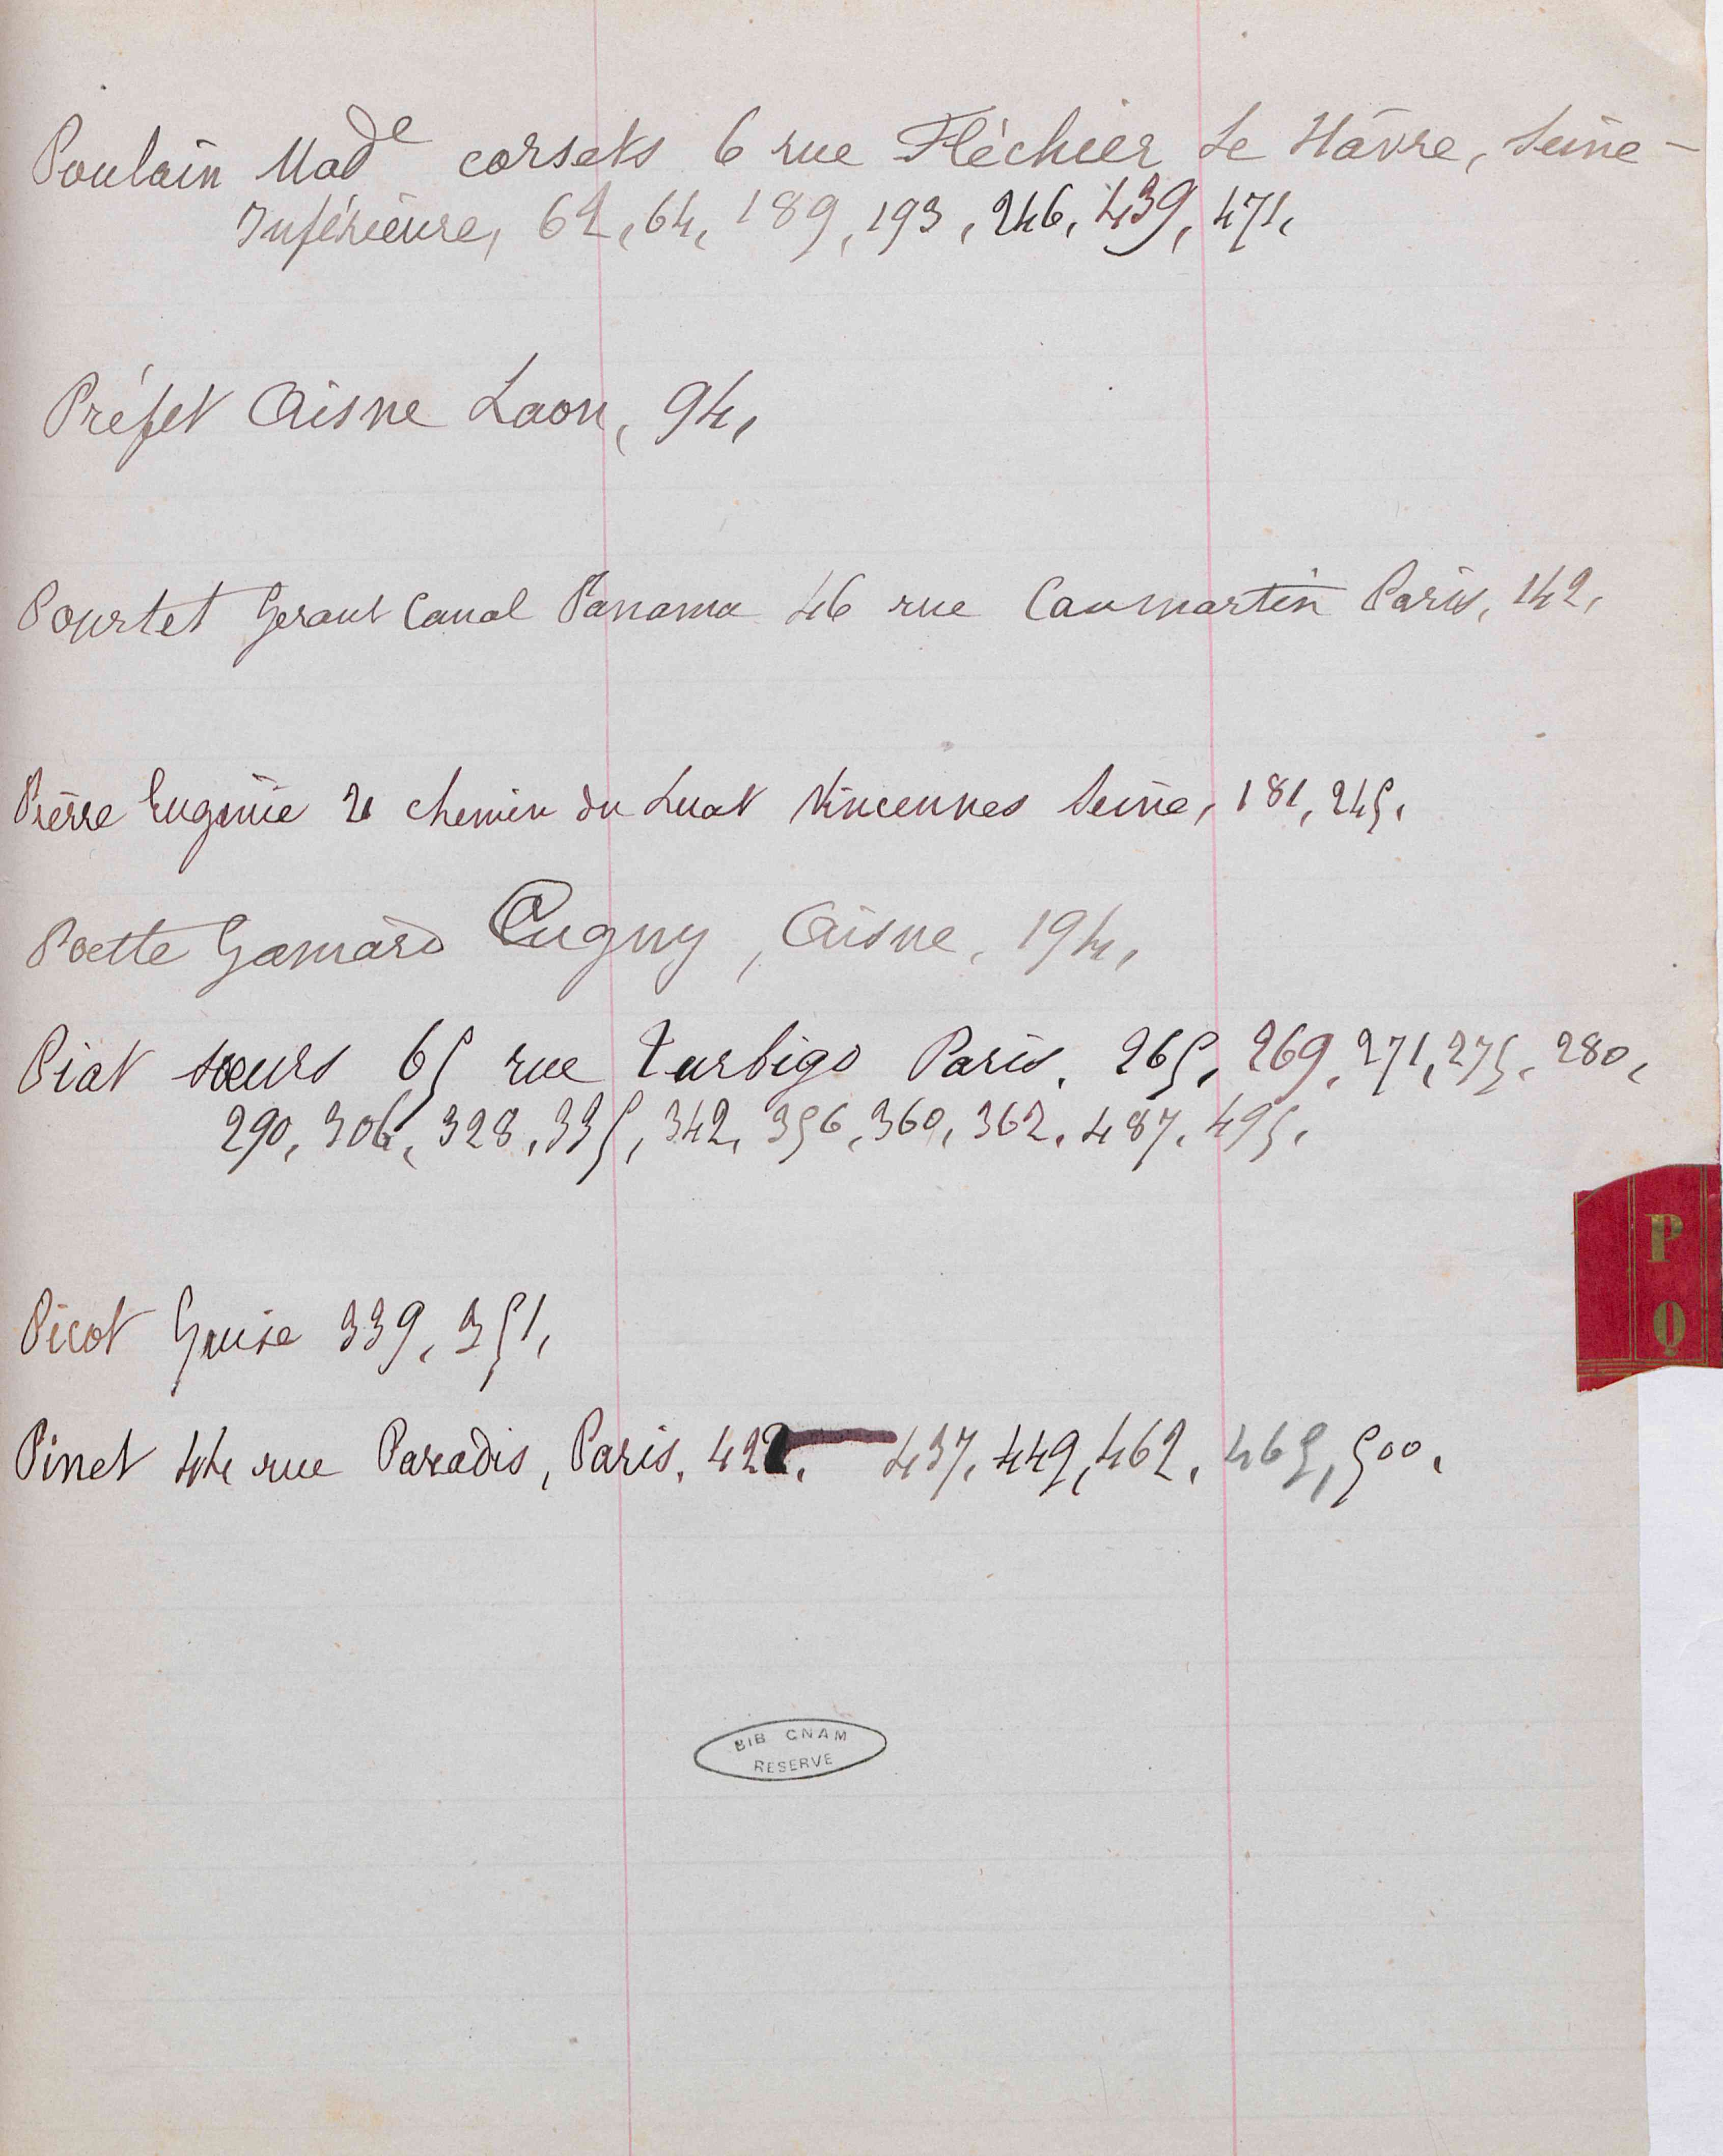 Poulain Mad^e corsets 6 rue Fléchier Le Hâvre, Seine-
Inférieure, 62, 64, 189, 193, 246, 439, 471,
Préfet Aisne Laon, 94,
Pourtet Gerant Canal Panama 46 rue Caumartin Paris, 142,
Pierre Eugénie chemin du Luat Vincennes Seine, 181, 245,
Poette Gamard Cugny, Aisne, 194,
Piat sœurs 65 rue Turbigo Paris, 265, 269, 271, 275, 280,
290, 306, 328, 335, 342, 356, 360, 362, 487, 495,
P
Q
Picot Guise 339, 351,
Pinet 44 rue Paradis, Paris, 437, 449, 462, 465, 500,
BIB CNAM
RESERVE